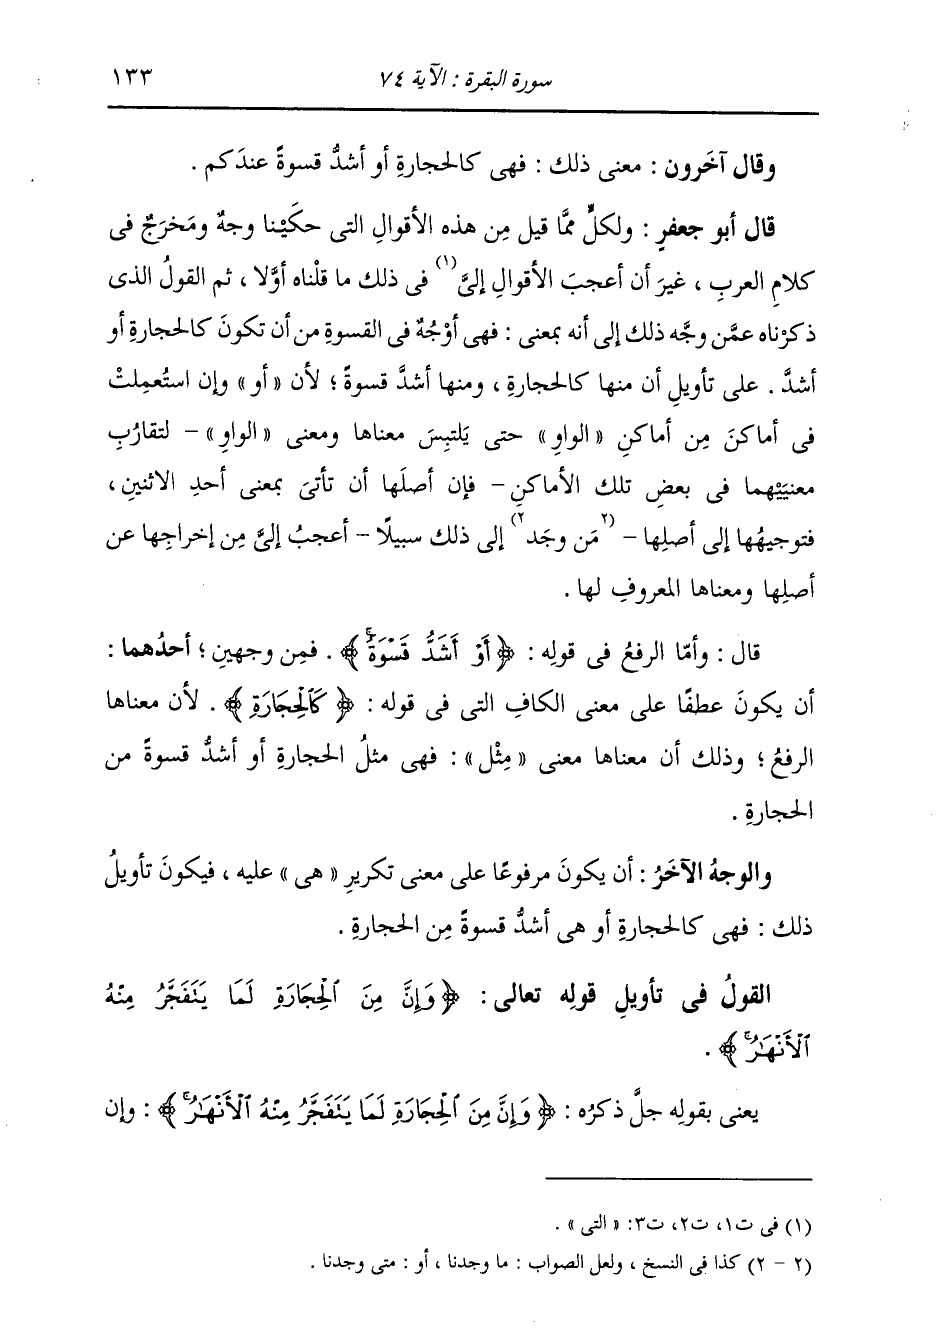 سورة البقرة : الآية ٧٤ ١٣٣
وقال آخَرون : معنى ذلك : فهى كالحجارةِ أو أشدُّ قسوةً عندَكم .
قال أبو جعفرٍ : ولكلٍّ ممَّا قيل مِن هذه الأقوالِ التى حكَيْنا وجهٌ ومَخرَجٌ فى
كلامِ العربِ ، غيرَ أن أعجبَ الأقوالِ إلىَّ(١) فى ذلك ما قلْناه أوَّلا ، ثم القولُ الذى
ذكرْناه عمَّن وجَّه ذلك إلى أنه بمعنى : فهى أوْجُهٌ فى القسوةِ من أن تكونَ كالحجارةِ أو
أشدَّ . على تأويلِ أن منها كالحجارةِ ، ومنها أشدَّ قسوةً ؛ لأن « أو » وإن استُعمِلتْ
فى أماكنَ مِن أماكنِ « الواوِ » حتى يَلتبِسَ معناها ومعنى « الواوِ » – لتقارُبِ
معنيَيْهما فى بعضِ تلك الأماكنِ – فإن أصلَها أن تأتىَ بمعنى أحدِ الاثنينِ ،
فتوجيهُها إلى أصلِها – (٢مَن وجَد٢) إلى ذلك سبيلًا – أعجبُ إلىَّ مِن إخراجِها عن
أصلِها ومعناها المعروفِ لها .
قال : وأمَّا الرفعُ فى قولِه : ﴿ أَوْ أَشَدُّ قَسْوَةًۚ ﴾ . فمِن وجهينِ ؛ أحدُهما :
أن يكونَ عطفًا على معنى الكافِ التى فى قوله : ﴿ كَٱلْحِجَارَةِ ﴾ . لأن معناها
الرفعُ ؛ وذلك أن معناها معنى « مِثْل » : فهى مثلُ الحجارةِ أو أشدُّ قسوةً من
الحجارةِ .
والوجهُ الآخَرُ : أن يكونَ مرفوعًا على معنى تكريرِ « هى » عليه ، فيكونَ تأويلُ
ذلك : فهى كالحجارةِ أو هى أشدُّ قسوةً مِن الحجارةِ .
القولُ فى تأويلِ قولِه تعالى : ﴿ وَإِنَّ مِنَ ٱلْحِجَارَةِ لَمَا يَتَفَجَّرُ مِنْهُ
ٱلْأَنْهَٰرُۚ ﴾ .
يعنى بقولِه جلَّ ذكرُه : ﴿ وَإِنَّ مِنَ ٱلْحِجَارَةِ لَمَا يَتَفَجَّرُ مِنْهُ ٱلْأَنْهَٰرُۚ ﴾ : وإن
(١) فى ت١، ت٢، ت٣: « التى » .
(٢ – ٢) كذا فى النسخ ، ولعل الصواب : ما وجدنا ، أو : متى وجدنا .